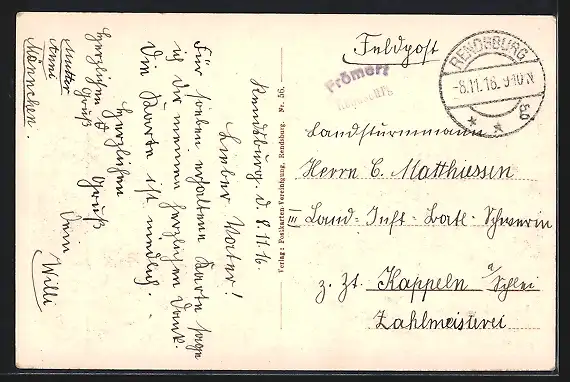 Rendsburg, d. 8.11.16.
Lieber Vater!
Für soeben erhaltene Karte sage
ich Dir meinen herzlichen Dank.
Die Karte ist niedlich.
Herzlichen Gruß
Dein Willi
Herzlichen Gruß
Mutter
Anni
Männchen.
Verlag: Postkarten-Vereinigung, Rendsburg. Nr. 56.
Feldpost
Frömert
RENDSBURG
-8.11.16. 9-10 N
* *
Landsturmmann
Herrn C. Matthiessen
III Land-Inft-Batl-Schwerin
z. Zt. Kappeln a/Schlei
Zahlmeisterei